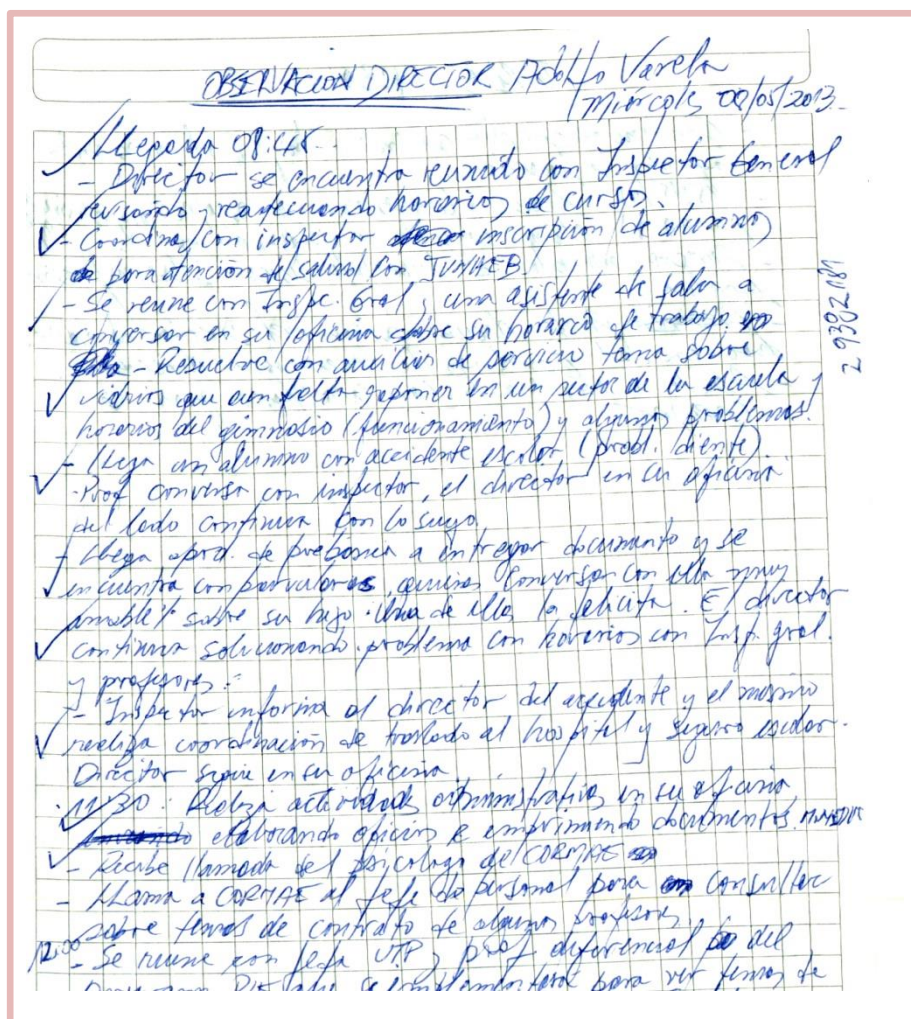 OBSERVACION DIRECTOR Adolfo Varela
Miércoles 08/05/2013.
Llegada 08:45.
- Director se encuentra reunido con Inspector General
revisando y readecuando horarios de cursos.
- Coordina con inspector inscripción de alumnos
para atención de salud con JUNAEB
- Se reune con Insp. Gral y una asistente de sala a
conversar en su oficina sobre su horario de trabajo.
- Resuelve con auxiliar de servicio tema sobre
vidrios que aun falta reponer en un sector de la escuela y
horarios del gimnasio (funcionamiento) y algunos problemas.
- Llega un alumno con accidente escolar (probl. diente)
Prof conversa con inspector, el director en su oficina
del lado continua con lo suyo.
- Llega apod. de prebasica a entregar documento y se
encuentra con parvularias quienes conversan con ella muy
amable% sobre su hijo. Una de ellas la felicita. El director
continua solucionando problema con horarios con Insp. gral.
y profesores.
- Inspector informa al director del accidente y el mismo
realiza coordinación de traslado al hospital y seguro escolar.
Director sigue en su oficina.
11:30: Realiza actividades administrativas en su oficina
elaborando oficios e imprimiendo documentos.
- Recibe llamada del psicologo del CORMAE
- Llama a CORMAE al jefe de personal para consultar
sobre temas de contrato de algunos profesores.
12:00 - Se reune con jefa UTP y prof diferencial del
Programa PIE que se implementará para ver temas de
2 9382181